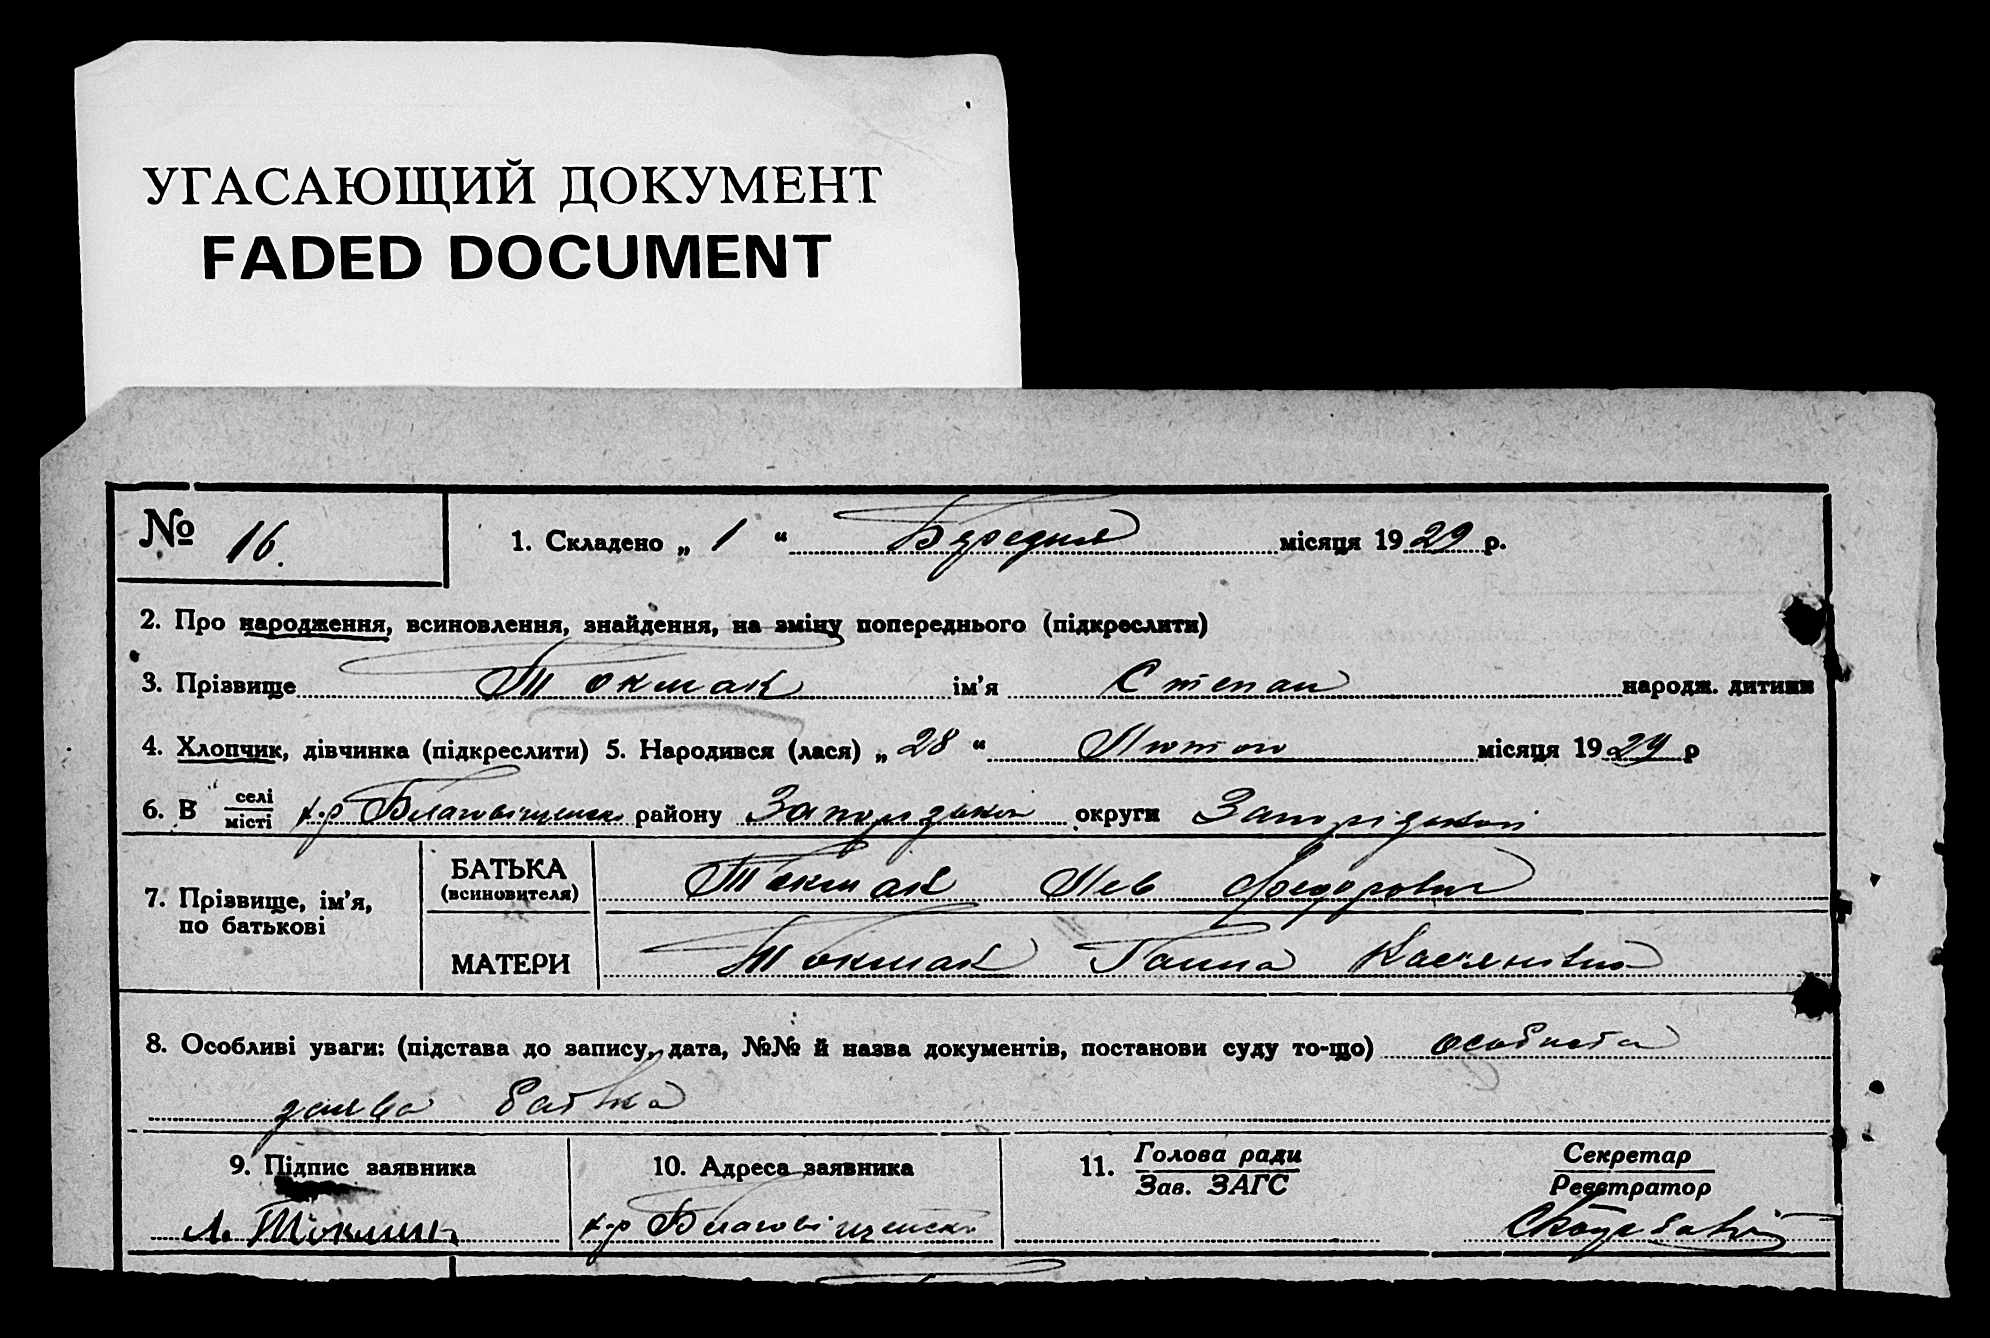 УГАСАЮЩИЙ ДОКУМЕНТ
FADED DOCUMENT
№ 16.
1. Складено „ 1 “ Березня місяця 1929 р.
2. Про народження, всиновлення, знайдення, на зміну попереднього (підкреслити)
3. Прізвище Токмак ім’я Степан народж. дитини
4. Хлопчик, дівчинка (підкреслити) 5. Народився (лася) „ 28 “ Лютого місяця 1929 р
6. В селі / місті х-р Благовіщенск району Запорізької округи Запорізької
7. Прізвище, ім’я, по батькові
БАТЬКА (всиновителя) Токмак Лев Федорович
МАТЕРИ Токмак Ганна Касянівна
8. Особливі уваги: (підстава до запису, дата, №№ й назва документів, постанови суду то-що) особиста
заява батька
9. Підпис заявника
10. Адреса заявника
11. Голова ради / Зав. ЗАГС
Секретар / Реєстратор
Л. Токмак
х-р Благовіщенськ